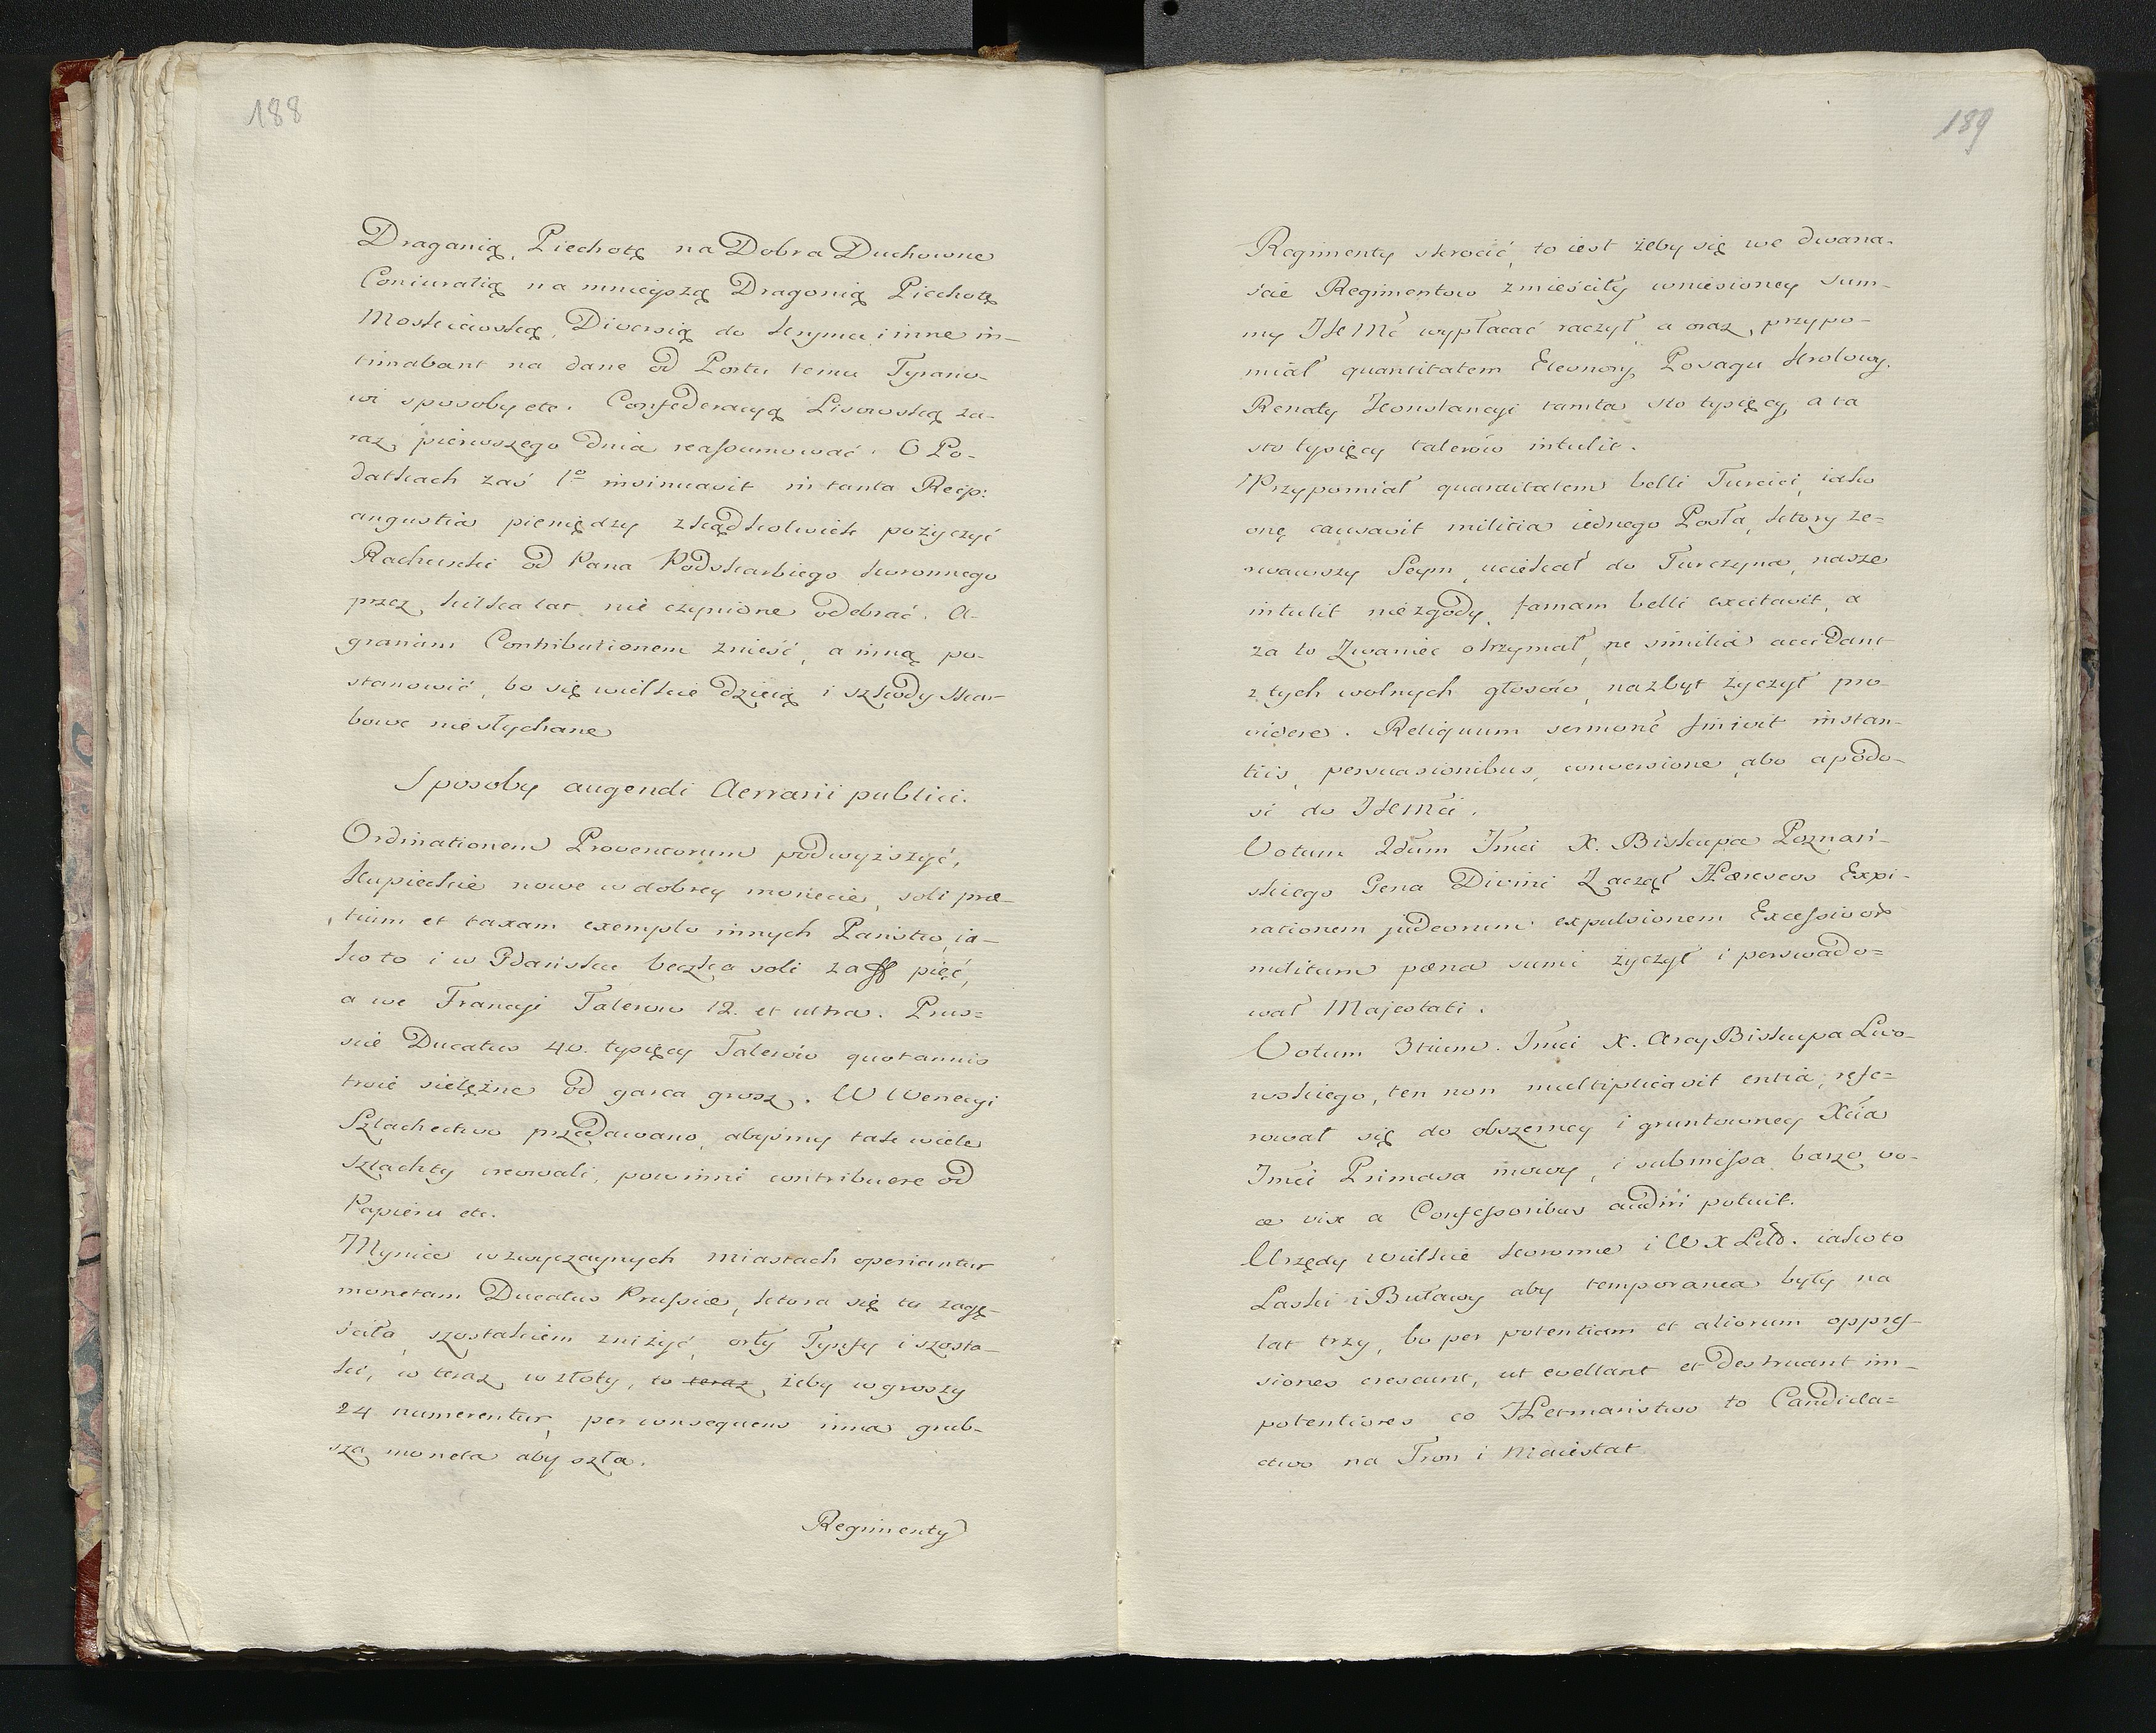 188
Draganią, Piechotę na Dobra Duchowne
Coniuratią na mnieyszą Dragonią Piechotę
Moskiewską, Diversią do Krymu i inne in-
timabant na dane od Portu temu Tyrano-
wi sposoby etc. Confederacyą Lisowską za-
raz pierwszego Dnia reassumować. O Po-
datkach zaś 1º insinuavit in tanta Reip:
angustia pieniędzy zkądkolwiek pożyczyć
Rachunki od Pana Podskarbiego koronnego
przez kilka lat nie czynione odebrać. A-
grariam Contributionem znieść, a inną po-
stanowić, bo się wielkie dzieią i szkody skar-
bowe niesłychane
Sposoby augendi Aerrarii publici.
Ordinationem Proventorum podwyższyć,
kupieckie nowe w dobrey monecie, soli præ-
tium et taxam exemplo innych Państw, ia-
ko to i w Gdańsku beczka soli za ff pięć,
a we Francyi Talerow 12. et ultra. Prus=
siæ Ducatus 40. tysięcy Talerów quotannis
troie sielężne od garca grosz. W Wenecyi
Szlachectwo przedawano, abyśmy tak wiele
szlachty creowali, powinni contribuere od
Papieru etc.
Mynice w zwyczaynych miastach aperiantur
monetam Ducatus Prussiæ, ktora się tu zagę-
ściła, szostakiem zniżyć, orły Tynfy i szosta-
ki, w teraz w złoty, to teraz, żeby w groszy
24 numerentur, per consequens inna grub-
sza moneta aby szła.
Regimenty
189
Regimenty skrocić, to iest żeby się we dwana-
ście Regimentow zmieściły wniesioney sum-
my JKMć wypłacać raczył, a oraz przypo-
mniał quantitatem Eleonory Posagu Krolowy.
Renaty Konstancyi tamta sto tysięcy, a ta
sto tysięcy talerów intulit.
Przypomiał quantitatem belli Turcici, iako
onę causavit militia iednego Posła, ktory ze=
rwawszy Seym, uciekał do Turczyna, nasze
intulit niezgody, famam belli excitavit, a
za to Zwaniec otrzymał, ne similia accidant
z tych wolnych głosów, nazbyt życzył pro-
videre. Reliquum sermonē finivit instan-
tiis, persuasionibus, conversione, abo apodo-
si do JKMći.
Votum 2dum Jmći X. Biskupa Poznań-
skiego Gena Divini Zaczął Hæreseos Expi-
rationem judeorum expulsionem Excessivor
militum pœna sumi życzył i perswado=
wał Majestati.
Votum 3tium. Jmći X. Arcy Biskupa Lwo-
wskiego, ten non multiplicavit entia, refe-
rował się do obszerney i gruntowney Xćia
Jmći Primasa mowy, i submissa barzo vo-
ce vix a Confessoribus audiri potuit.
Urzędy wielkie koronne i W X Litt. iako to
Laski i Buławy aby temporanea były na
lat trzy, bo per potentiam et aliorum oppres-
siones crescunt, ut evellant et destruant im-
potentiores co Hetmaństwo to Candida=
ctwo na Tron i Maiestat